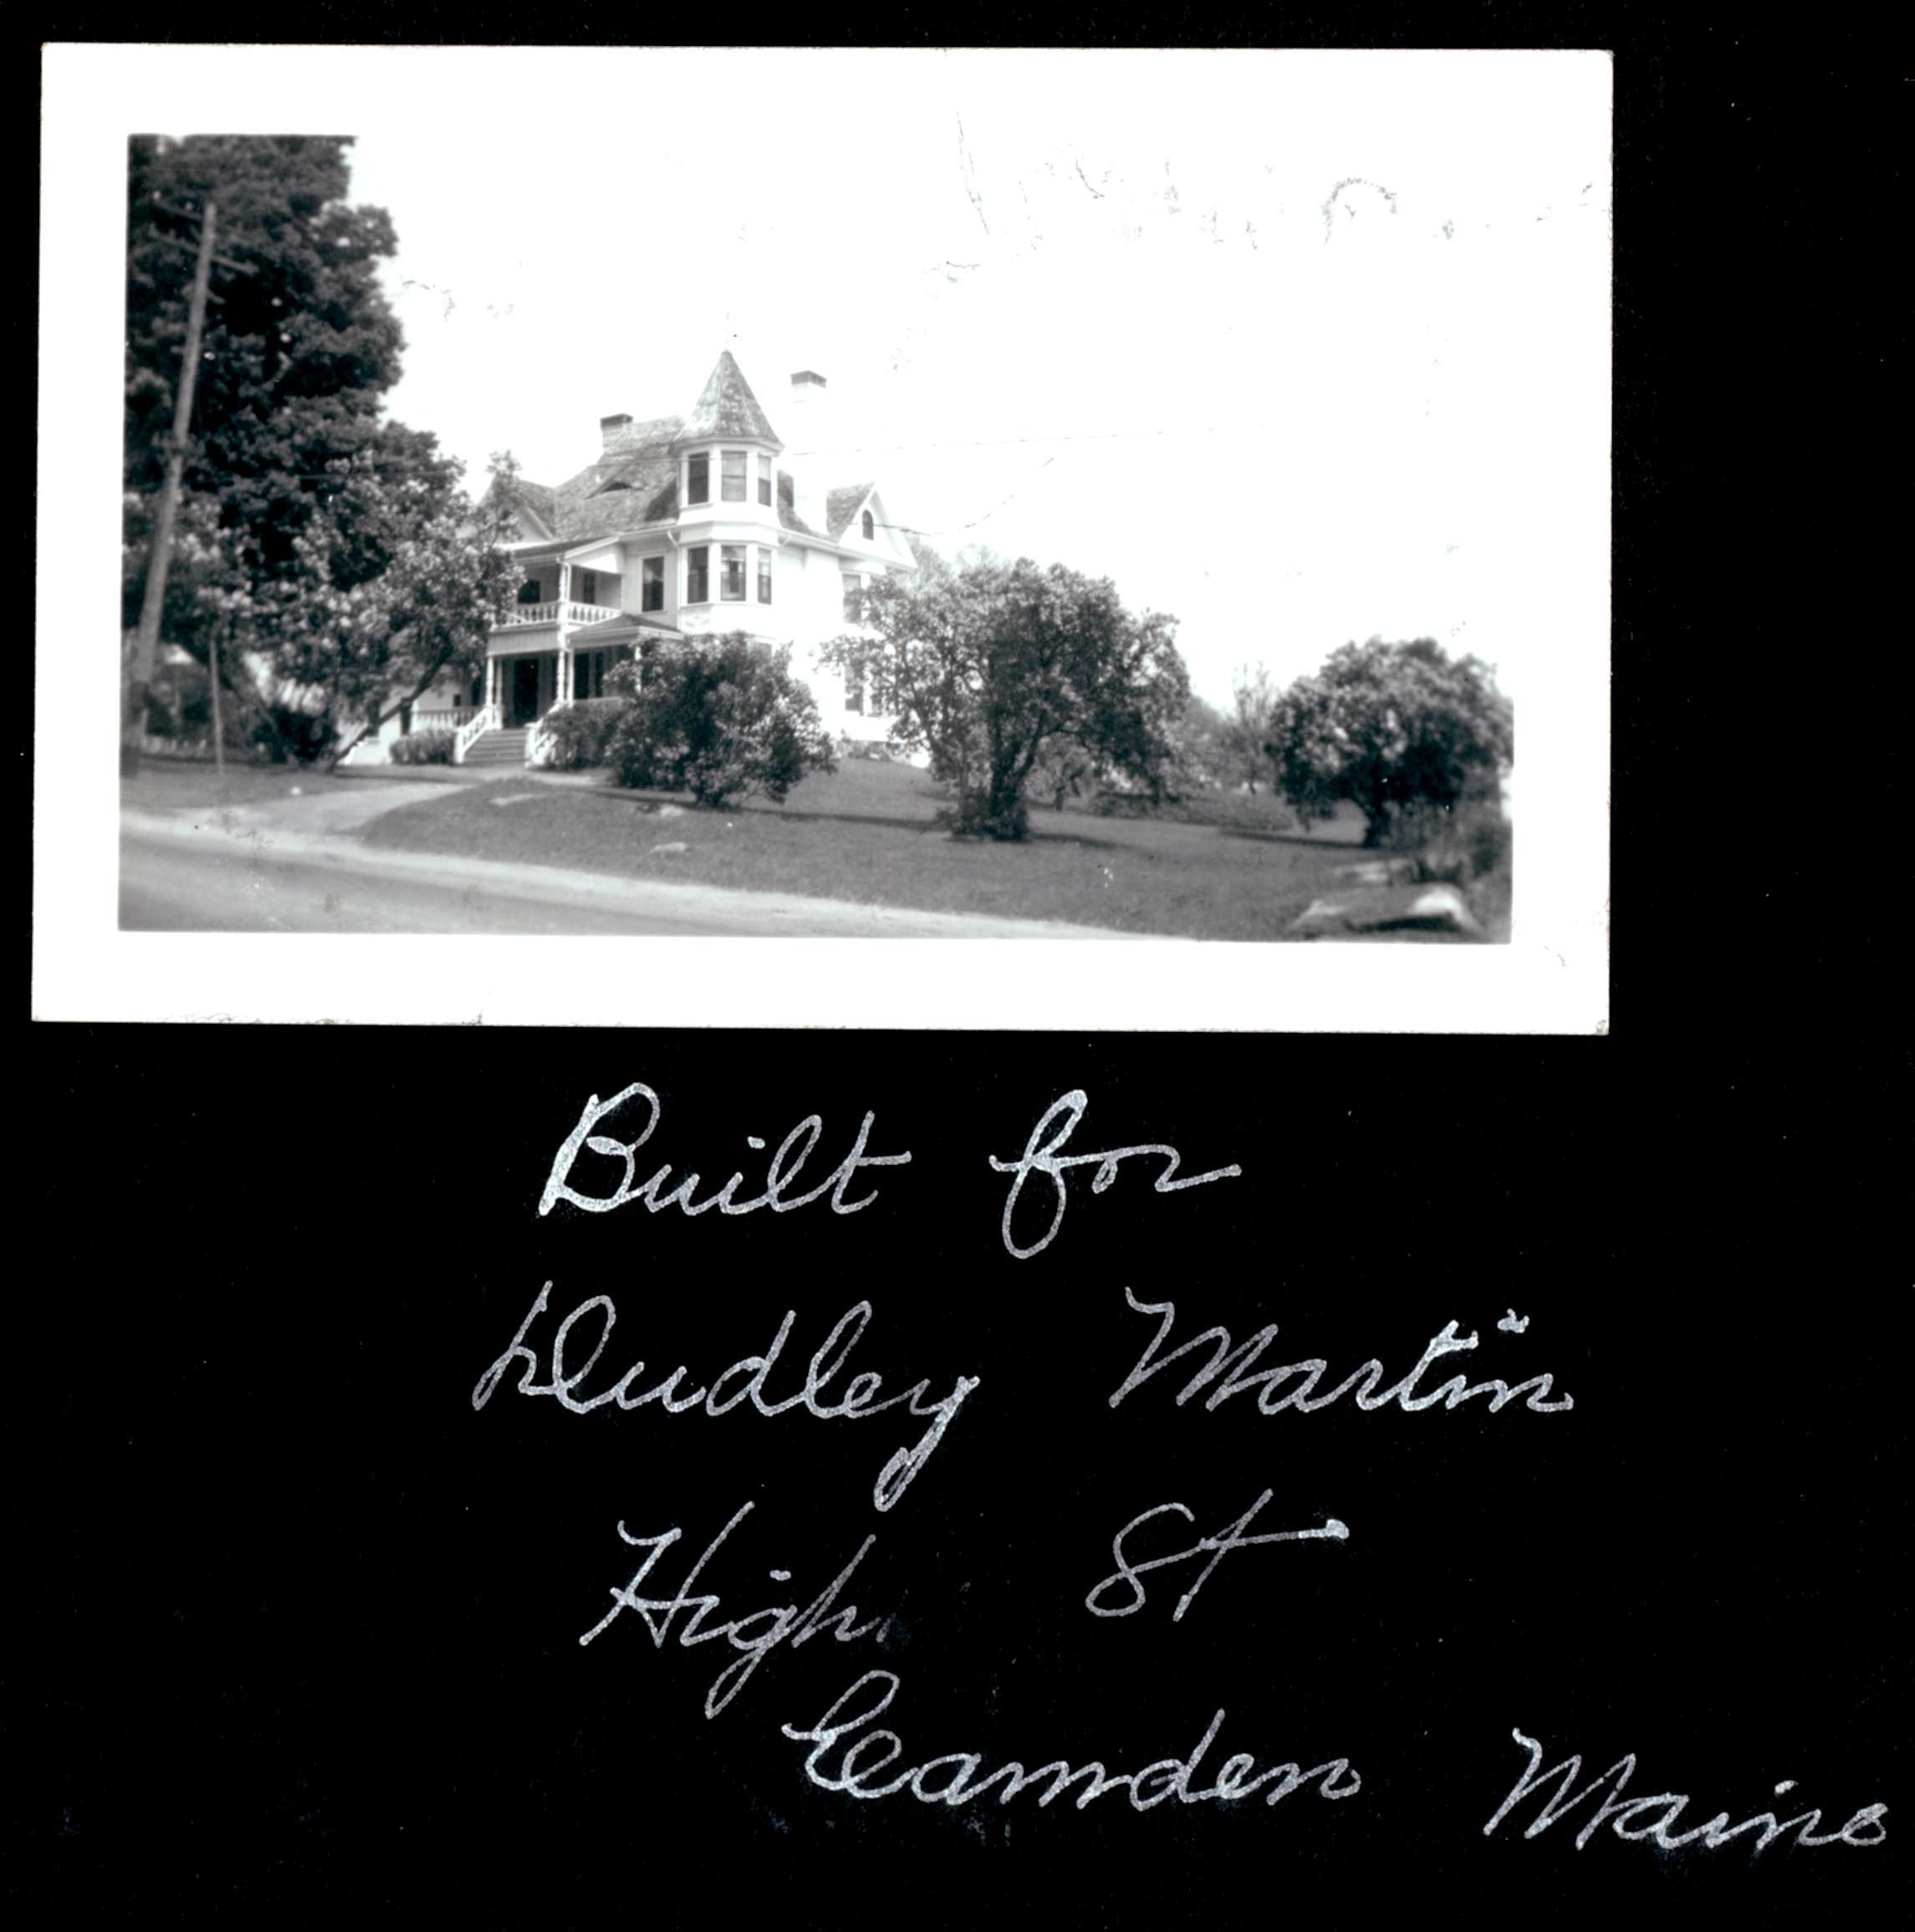 Built for
Dudley Martin
High St
Camden Maine